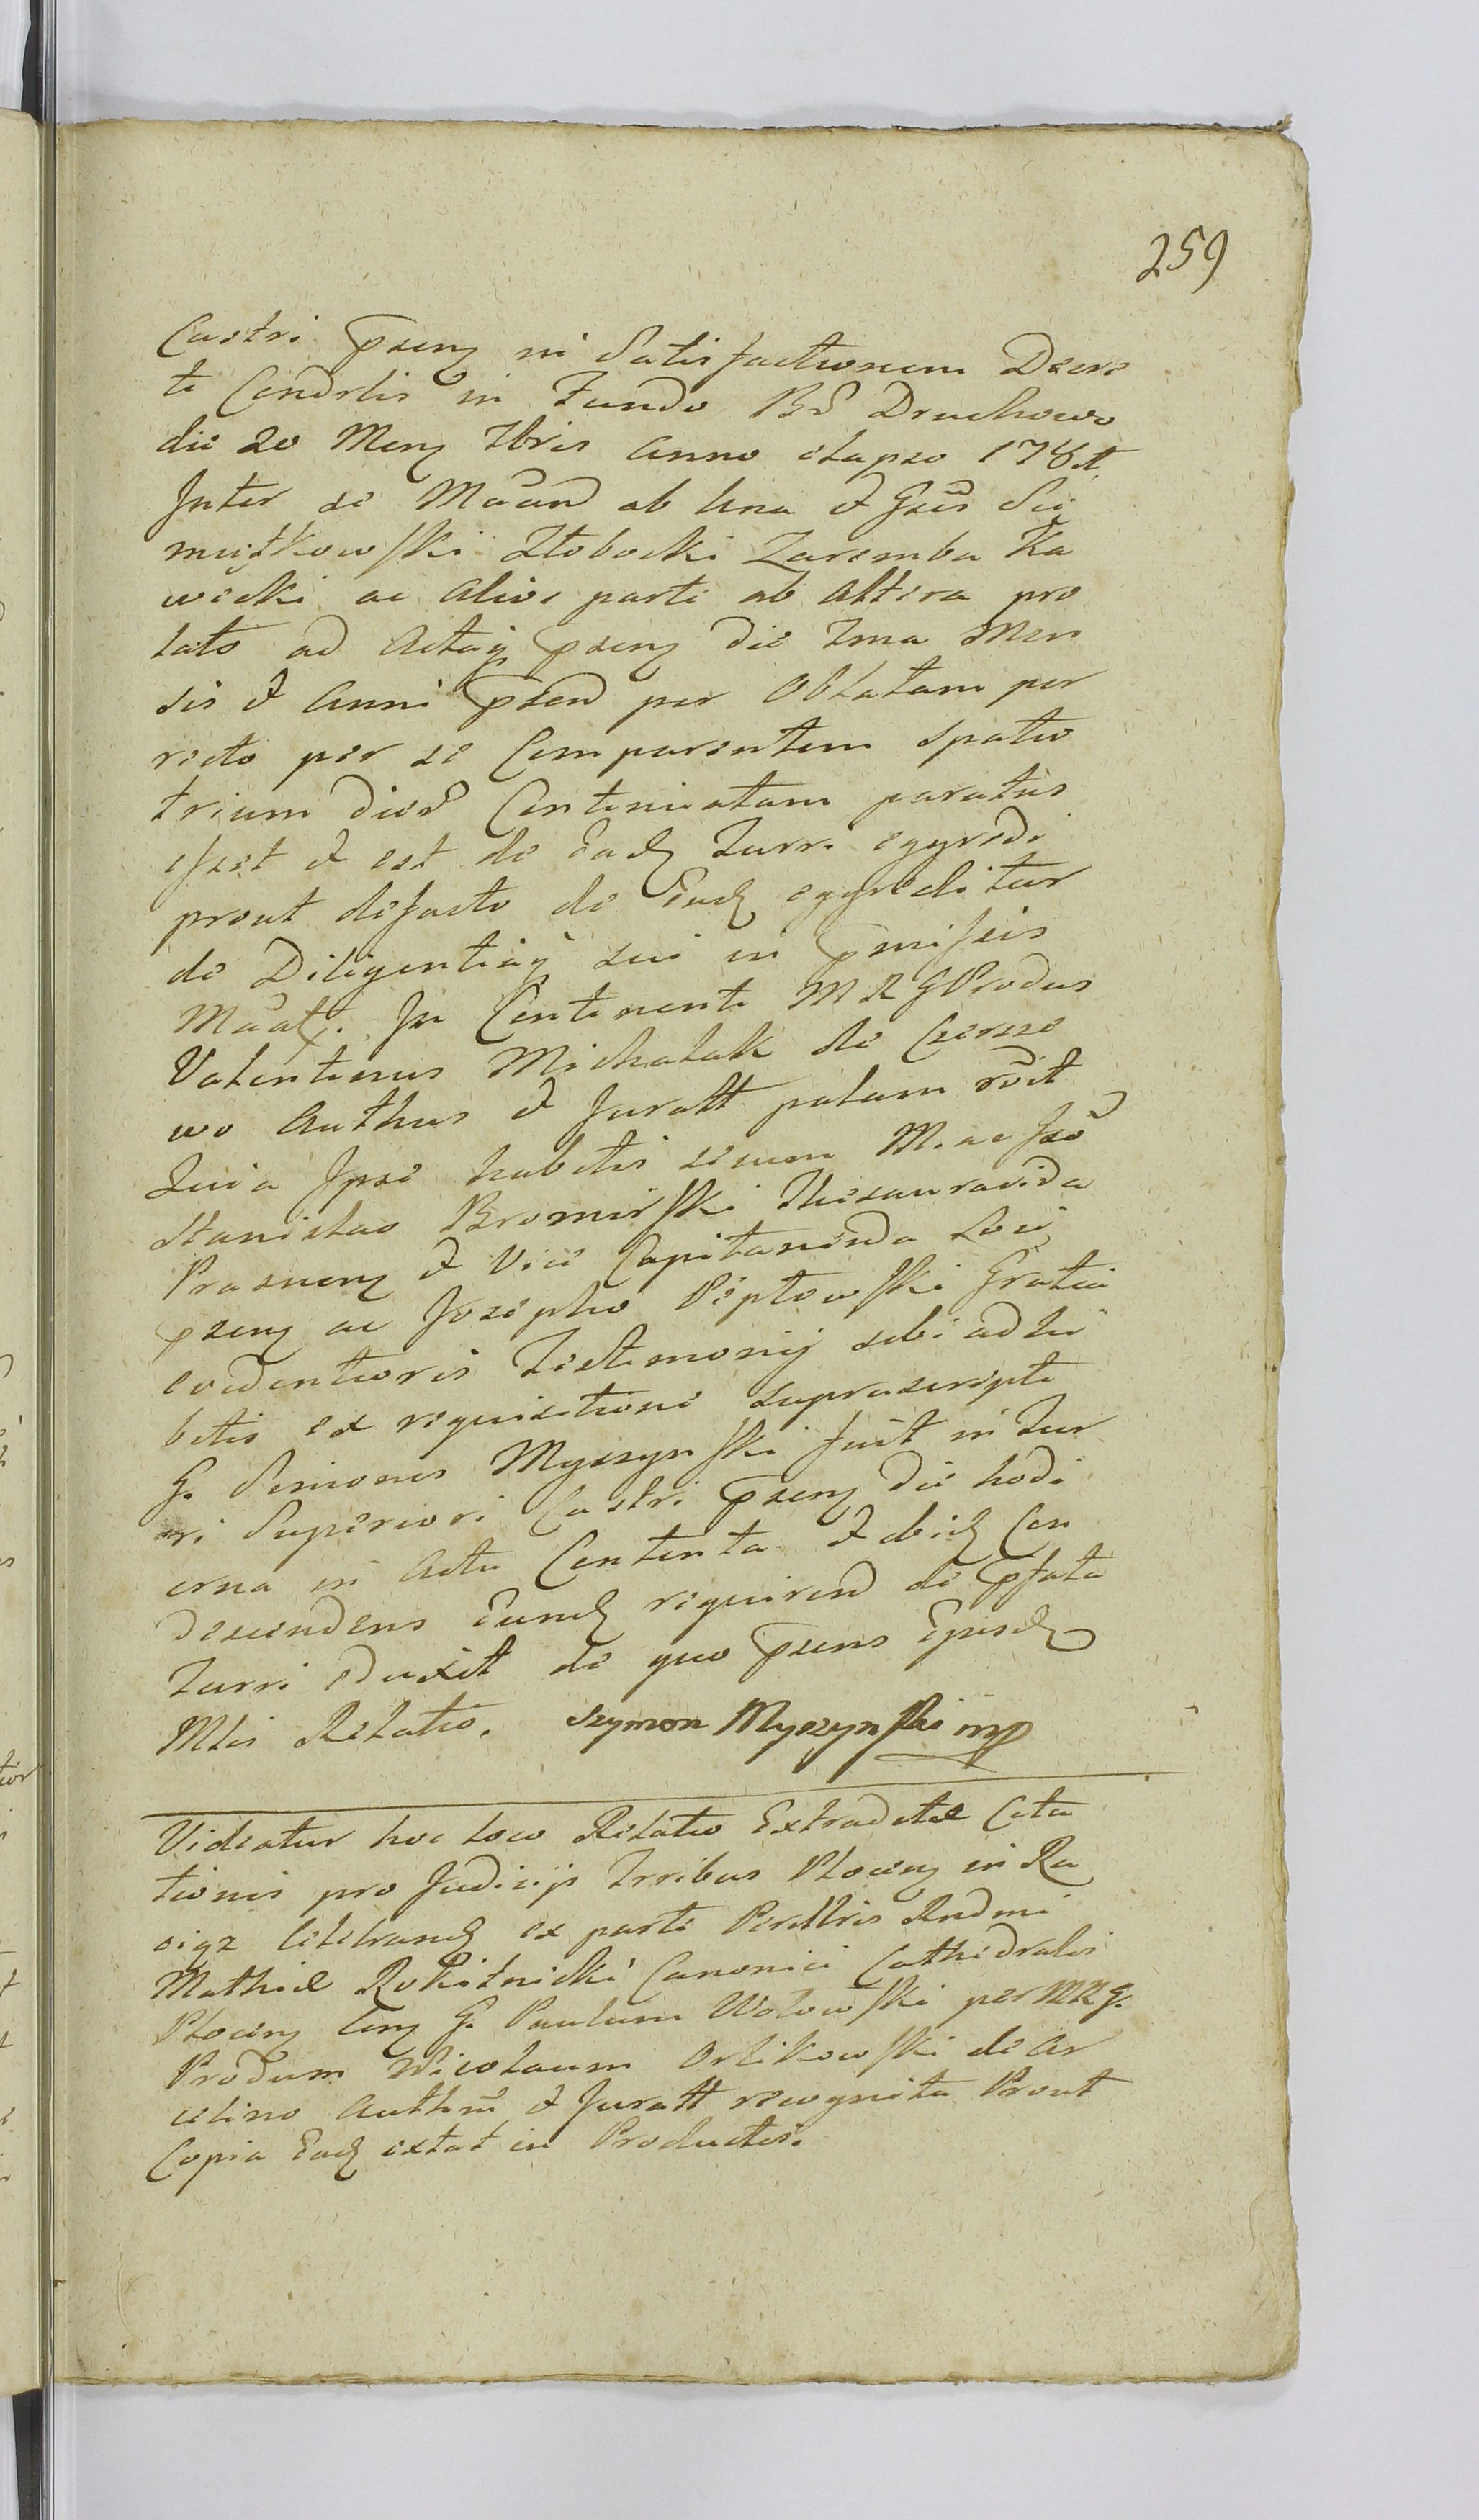 259
Castri psenz in Satisfactionem Decre
ti Condrlis in Fundo Br Druchowo
die 20 Menz Xbris anno elapso 1784
Inter se Maand ab una et Gsis Sie
miątkowski Złobocki Zaremba Ka
wecki ac alios parte ab altera pro
lato ad Actaqz psenz die 7ma Men
sis et Anni psend per Oblatam por
recto per se Comparentem spatio
trium dier Continuatam paratus
esset et est de eadz Turri egredi
prout defacto de Eadz egreditur
de Diligentiaqz sui in pmissis
Maatz. In Continenti M R G Produs
Valentinus Michalak de Czerne
wo Authus et Juratt palam rdit
Quia Ipse habitis secum M. ac Gso
Stanislao Bromirski Thesaurarida
Prasnenz et Vice Capitaneida Loci
psenz ac Josepho Peptowski Gratia
evidentioris Testimonij sibi adhi
bitis ex requisitione suprascripti
G. Simonis Myszynski fuit in Tur
ri Superiori Castri psenz die hodi
erna in Actu Contenta et ibidz Con
descendens Eundz requirend de pfata
Turri eduxit de quo psens Ejusdz
Mlis Relatio. Szymon Myszynski mp
Videatur hoc loco Relatio Extraditæ Cita
tionis pro Judicijs Trribus Plocenz in Ra
ciąz celebrandz ex parte Perillris Rndmi
Mathiæ Rokitnicki Canonici Cathedralis
Plocenz Conz G. Paulum Wolowski per M R G.
Produm Nicolaum Orlikowski de Ar
celino Authm et Juratt recognita Prout
Copia Eadz extat in Productis.